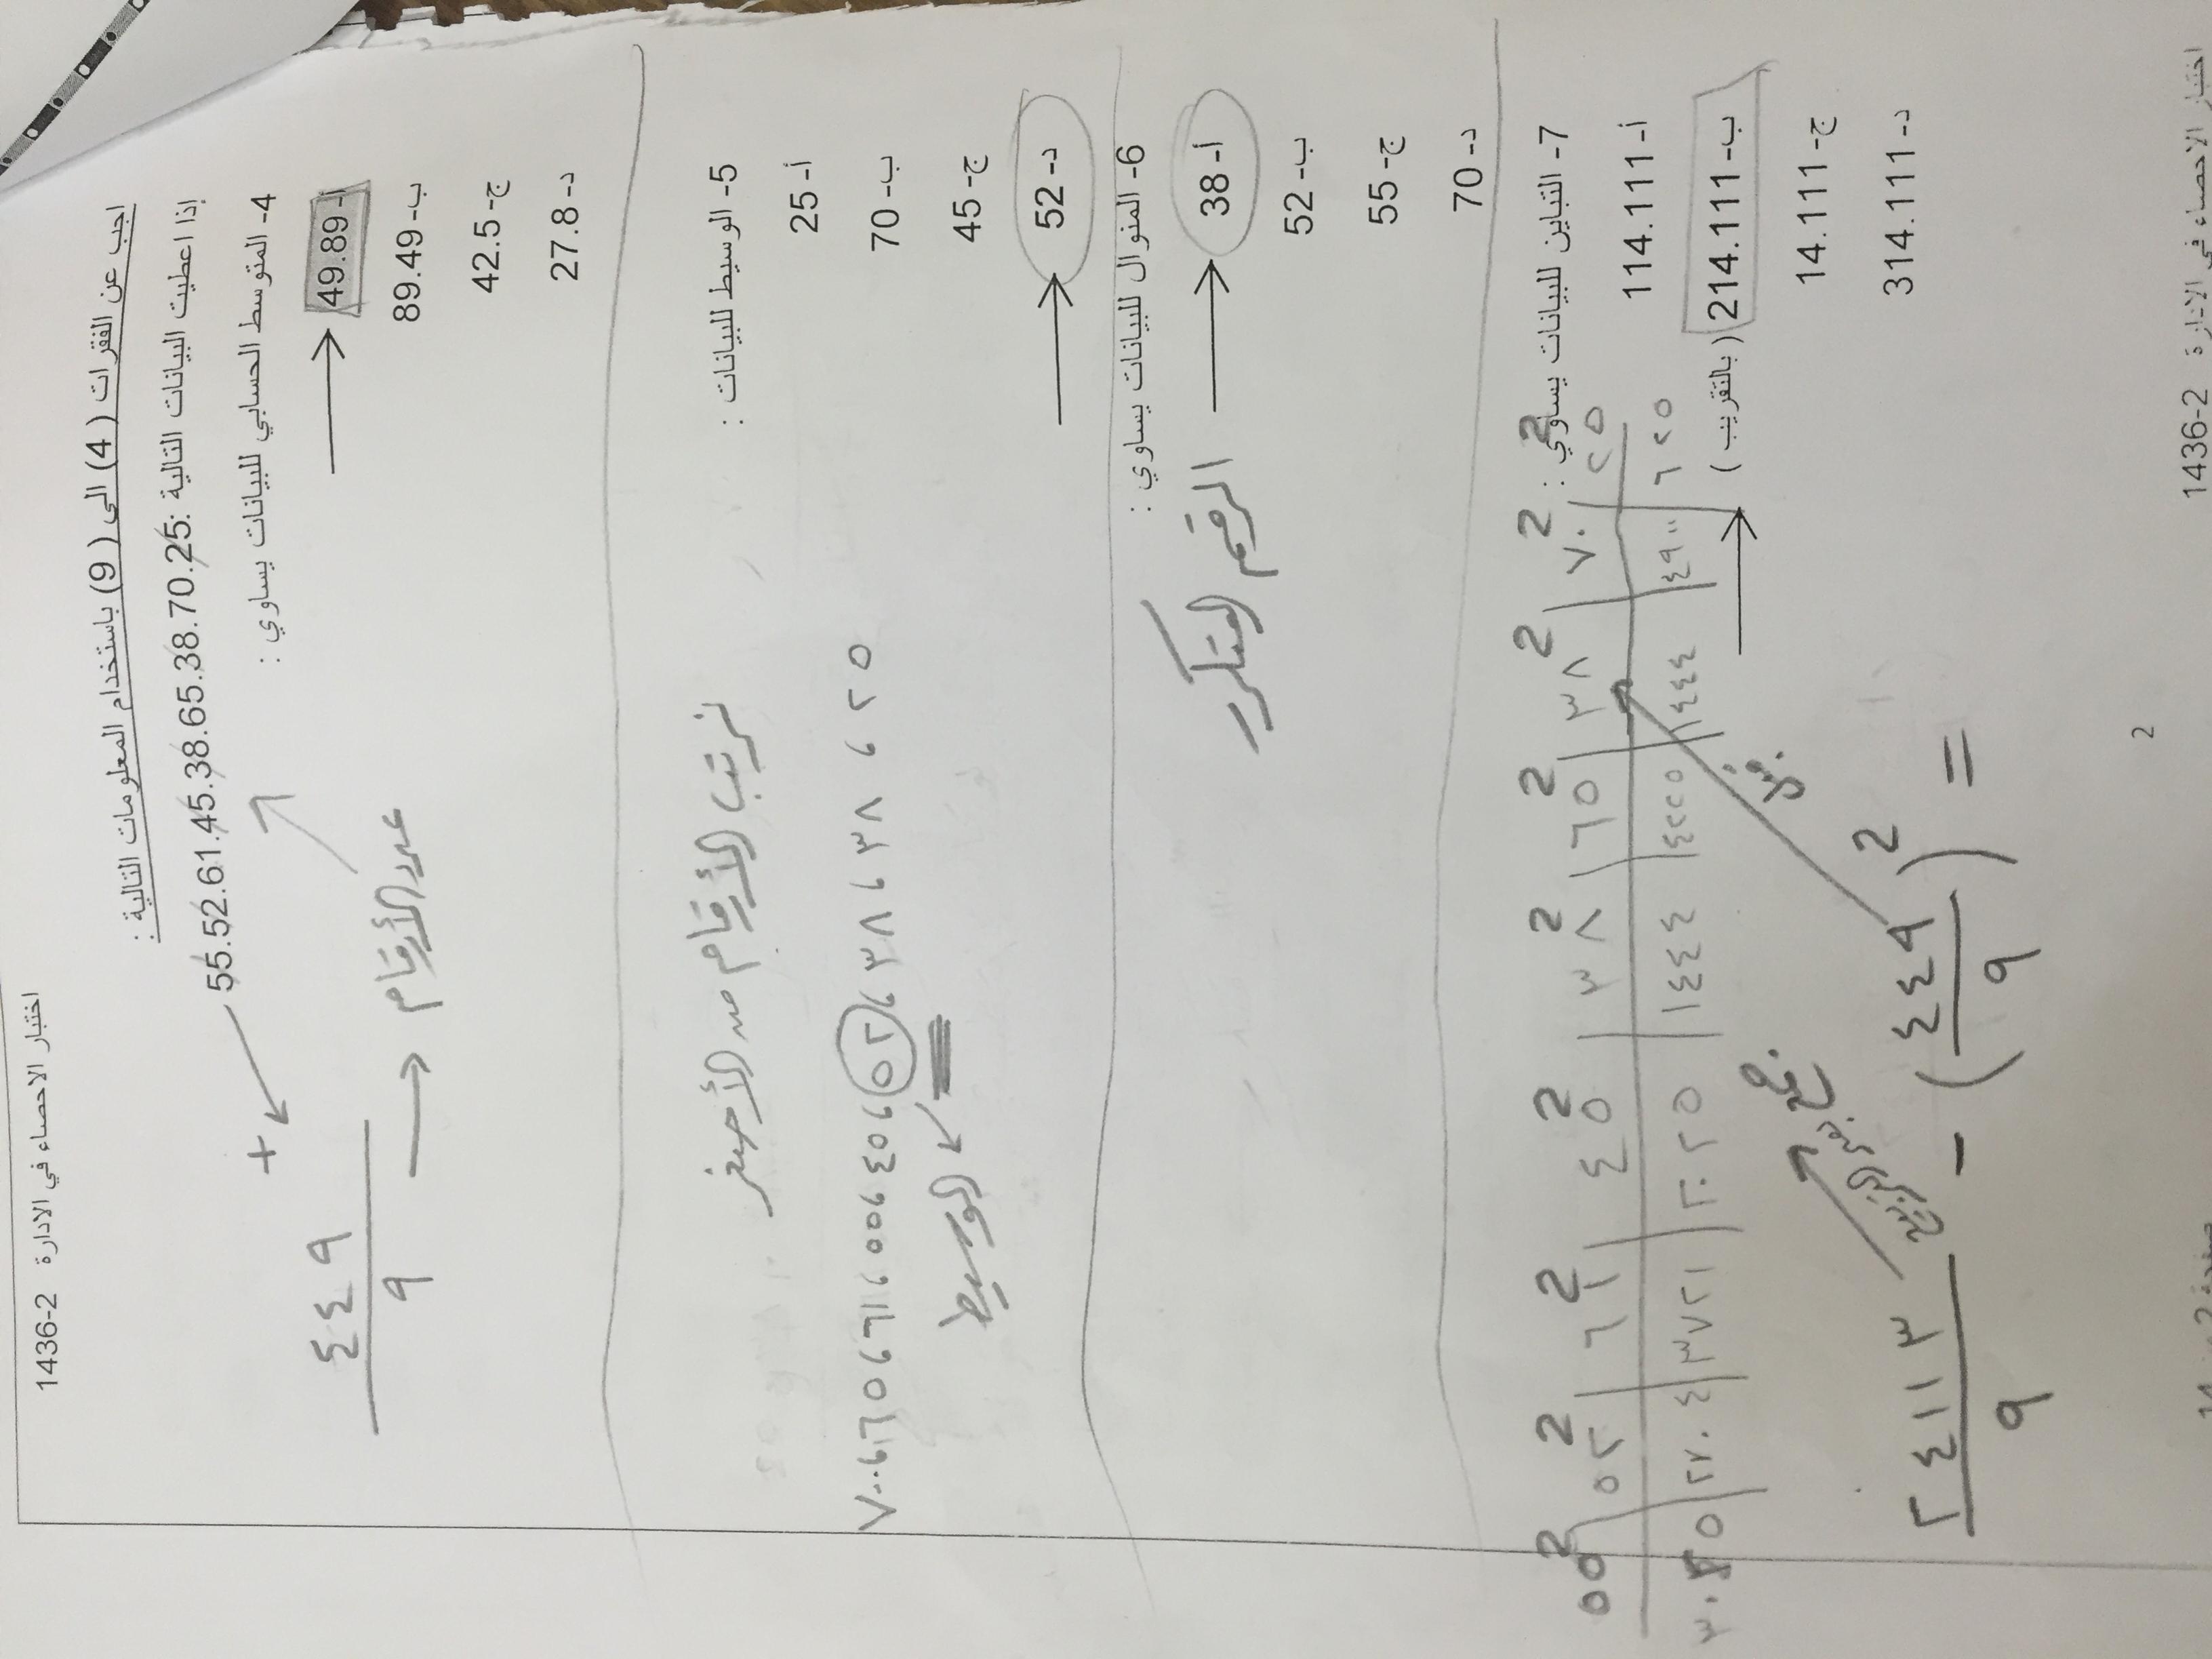 اختبار الاحصاء في الادارة 2-1436
اجب عن الفقرات ( 4) الى ( 9) باستخدام المعلومات التالية :
إذا اعطيت البيانات التالية :55.52.61.45.38.65.38.70.25
4- المتوسط الحسابي للبيانات يساوي :
+
أ- 49.89
٤٤٩
٩
عدد الأرقام
ب- 89.49
ج- 42.5
د- 27.8
5- الوسيط للبيانات :
نرتب الأرقام من الأصغر
أ- 25
٧٠،٦٥،٦١،٥٥،٤٥،٥٢،٣٨،٣٨،٢٥
ب- 70
الوسيط
ج- 45
د- 52
6- المنوال للبيانات يساوي :
أ- 38
الرقم المتكرر
ب- 52
ج- 55
د- 70
7- التباين للبيانات يساوي :
٥٥2 ٥٢2 ٦١2 ٤٥2 ٣٨2 ٦٥2 ٣٨2 ٧٠2 ٢٥2
أ- 114.111
٣٠٢٥ ٢٧٠٤ ٣٧٢١ ٢٠٢٥ ١٤٤٤ ٤٢٢٥ ١٤٤٤ ٤٩٠٠ ٦٢٥
ب- 214.111 ( بالتقريب )
ج- 14.111
د- 314.111
٢٤١١٣ - (٤٤٩)2 =
٩ ٩
2
اختبار الاحصاء في الادارة 2-1436